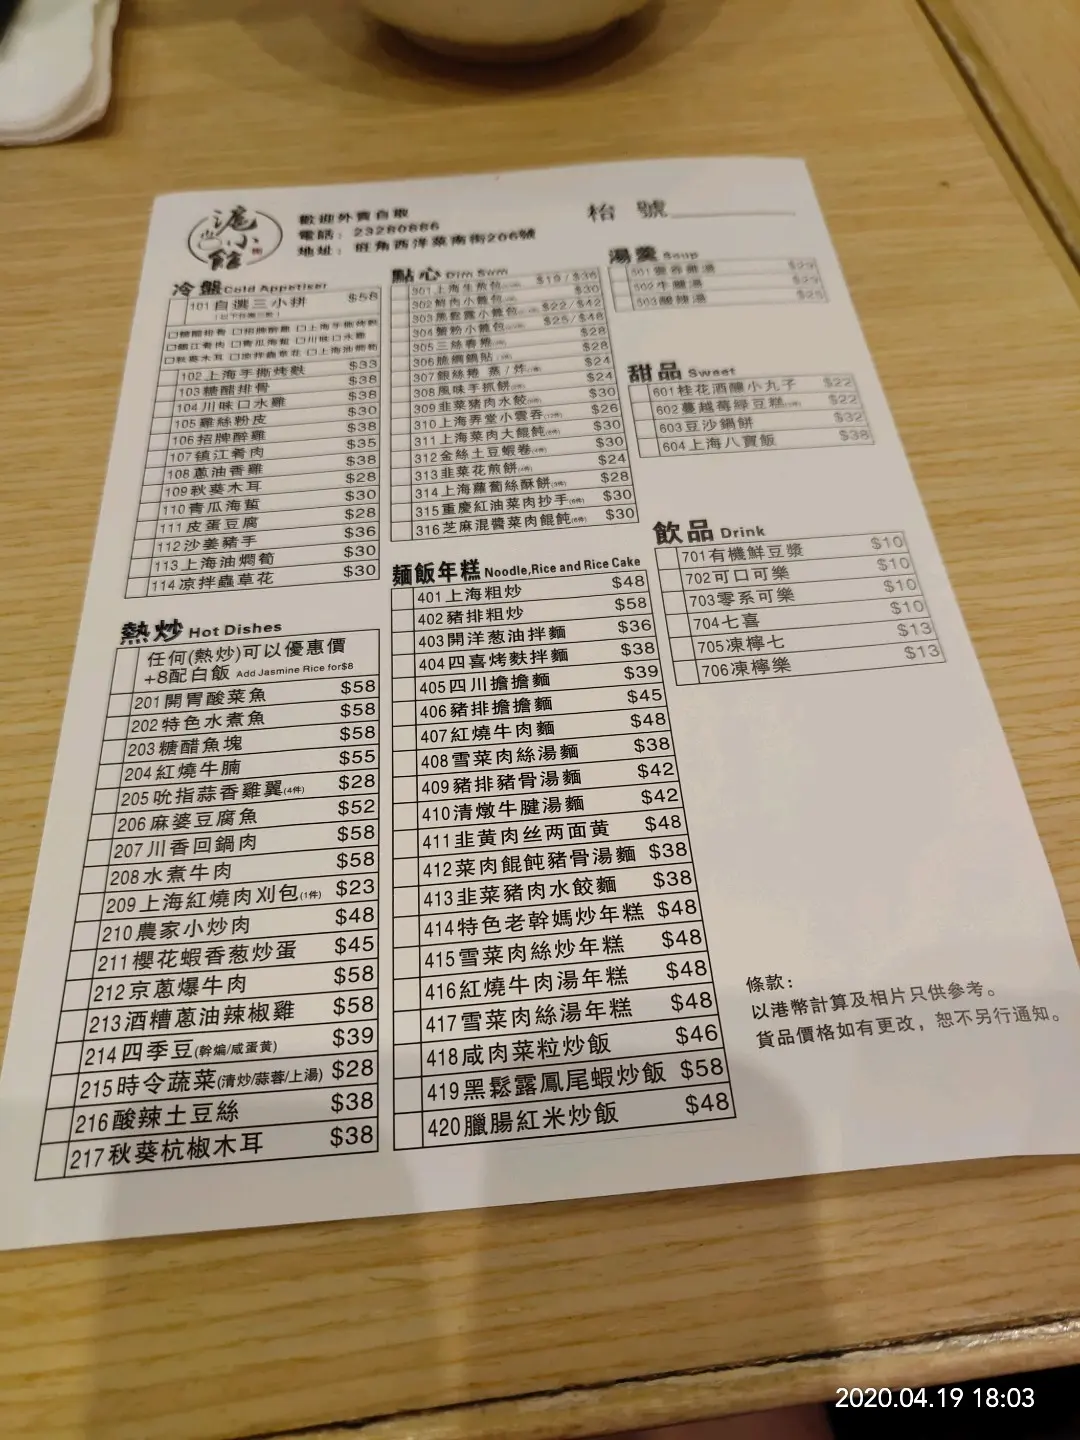 滬小館
歡迎外賣自取
電話: 23280886
地址: 旺角西洋菜南街206號
枱號
冷盤 Cold Appetiser
101 自選三小拼 $58
102 上海手撕烤麩 $33
103 糖醋排骨 $38
104 川味口水雞 $38
105 雞絲粉皮 $30
106 招牌醉雞 $38
107 镇江肴肉 $35
108 蔥油香雞 $38
109 秋葵木耳 $28
110 青瓜海蜇 $30
111 皮蛋豆腐 $28
112 沙姜豬手 $36
113 上海油燜筍 $30
114 凉拌蟲草花 $30
熱炒 Hot Dishes
任何(熱炒)可以優惠價
+8配白飯 Add Jasmine Rice for$8
201 開胃酸菜魚 $58
202 特色水煮魚 $58
203 糖醋魚塊 $58
204 紅燒牛腩 $55
205 吮指蒜香雞翼(4件) $28
206 麻婆豆腐魚 $52
207 川香回鍋肉 $58
208 水煮牛肉 $58
209 上海紅燒肉刈包(1件) $23
210 農家小炒肉 $48
211 櫻花蝦香葱炒蛋 $45
212 京蔥爆牛肉 $58
213 酒糟蔥油辣椒雞 $58
214 四季豆(幹煸/咸蛋黃) $39
215 時令蔬菜(清炒/蒜蓉/上湯) $28
216 酸辣土豆絲 $38
217 秋葵杭椒木耳 $38
點心 Dim Sum
301 上海生煎包 $19/$36
302 鮮肉小籠包 $30
303 黑鬆露小籠包 $22/$42
304 蟹粉小籠包 $25/$48
305 三絲春捲 $28
306 脆網鍋貼 $28
307 銀絲捲 蒸/炸 $24
308 風味手抓餅 $24
309 韭菜豬肉水餃 $30
310 上海弄堂小雲吞 $26
311 上海菜肉大餛飩 $30
312 金絲土豆蝦卷 $30
313 韭菜花煎餅 $24
314 上海蘿蔔絲酥餅 $28
315 重慶紅油菜肉抄手 $30
316 芝麻混醬菜肉餛飩 $30
麵飯年糕 Noodle,Rice and Rice Cake
401 上海粗炒 $48
402 豬排粗炒 $58
403 開洋葱油拌麵 $36
404 四喜烤麩拌麵 $38
405 四川擔擔麵 $39
406 豬排擔擔麵 $45
407 紅燒牛肉麵 $48
408 雪菜肉絲湯麵 $38
409 豬排豬骨湯麵 $42
410 清燉牛腱湯麵 $42
411 韭黄肉丝两面黄 $48
412 菜肉餛飩豬骨湯麵 $38
413 韭菜豬肉水餃麵 $38
414 特色老幹媽炒年糕 $48
415 雪菜肉絲炒年糕 $48
416 紅燒牛肉湯年糕 $48
417 雪菜肉絲湯年糕 $48
418 咸肉菜粒炒飯 $46
419 黑鬆露鳳尾蝦炒飯 $58
420 臘腸紅米炒飯 $48
湯羹 Soup
501 雲吞雞湯
502 牛腩湯
503 酸辣湯 $25
甜品 Sweet
601 桂花酒釀小丸子 $22
602 蔓越莓綠豆糕 $22
603 豆沙鍋餅 $32
604 上海八寶飯 $38
飲品 Drink
701 有機鮮豆漿 $10
702 可口可樂 $10
703 零系可樂 $10
704 七喜 $10
705 凍檸七 $13
706 凍檸樂 $13
條款:
以港幣計算及相片只供參考。
貨品價格如有更改，恕不另行通知。
2020.04.19 18:03